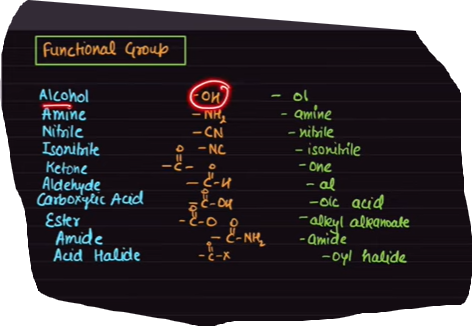 Functional Group
Alcohol -OH - ol
Amine -NH₂ - amine
Nitrile -CN - nitrile
Isonitrile -NC - isonitrile
Ketone -C- O -one
Aldehyde O -C-H - al
Carboxylic Acid O -C-OH -oic acid
Ester O -C-O -alkyl alkanoate
Amide O -C-NH₂ -amide
Acid Halide O -C-X -oyl halide